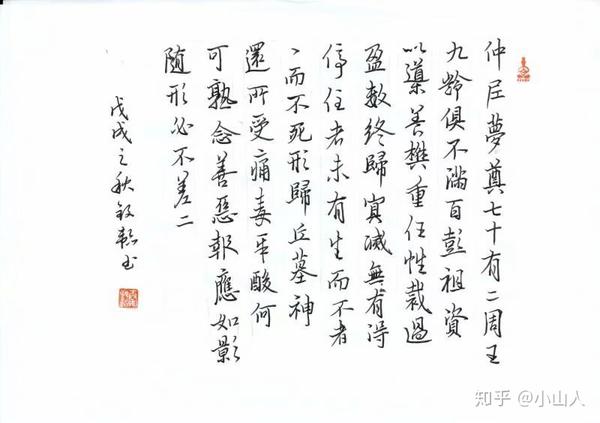 仲尼夢奠七十有二周王
九齡俱不滿百彭祖資
以導養樊重任性裁過
盈數終歸冥滅無有得
停住者未有生而不老
、而不死形歸丘墓神
還所受痛毒辛酸何
可熟念善惡報應如影
随形必不差二
戊戌之秋书
知乎 @小山人